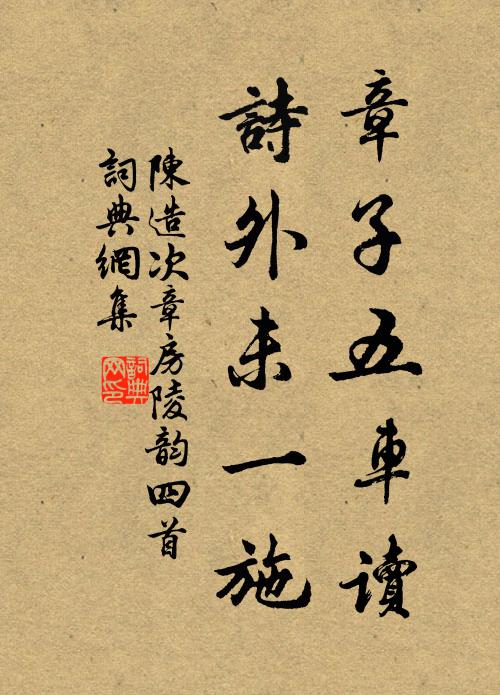 章子五車讀
詩外未一施
陳造次章房陵韵四首
詞典網集
詞典网印